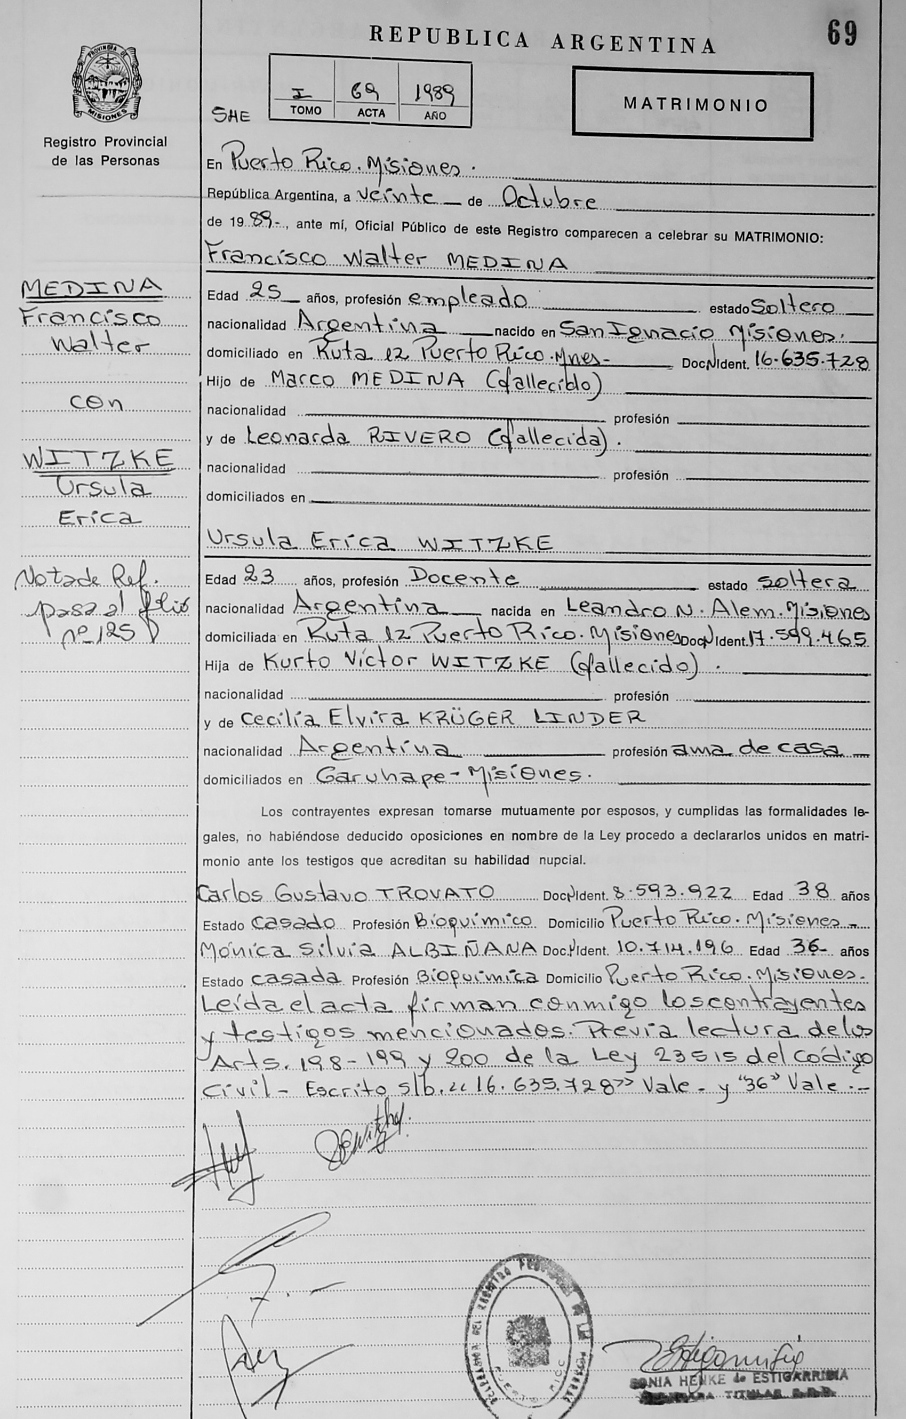 69
REPUBLICA ARGENTINA
PROVINCIA DE
MISIONES
Registro Provincial
de las Personas
SHE
I 69 1989
TOMO ACTA AÑO
MATRIMONIO
En Puerto Rico. Misiones.
República Argentina, a veinte de Octubre
de 1989-, ante mí, Oficial Público de este Registro comparecen a celebrar su MATRIMONIO:
Francisco Walter MEDINA
MEDINA
Francisco
Walter
con
WITZKE
Ursula
Erica
Nota de Ref.
pasa al folio
nº 125
Edad 25 años, profesión empleado estado Soltero
nacionalidad Argentina nacido en San Ignacio Misiones.
domiciliado en Ruta 12 Puerto Rico. Mnes- Doc.N.Ident. 16.635.728
Hijo de Marco MEDINA (fallecido)
nacionalidad profesión
y de Leonarda RIVERO (fallecida).
nacionalidad profesión
domiciliados en
Ursula Erica WITZKE
Edad 23 años, profesión Docente estado soltera
nacionalidad Argentina nacida en Leandro N. Alem. Misiones
domiciliada en Ruta 12 Puerto Rico. Misiones Doc.N.Ident. 17.599.465
Hija de Kurto Víctor WITZKE (fallecido).
nacionalidad profesión
y de Cecilia Elvira KRÜGER LINDER
nacionalidad Argentina profesión ama de casa
domiciliados en Garuhape - Misiones.
Los contrayentes expresan tomarse mutuamente por esposos, y cumplidas las formalidades le-
gales, no habiéndose deducido oposiciones en nombre de la Ley procedo a declararlos unidos en matri-
monio ante los testigos que acreditan su habilidad nupcial.
Carlos Gustavo TROVATO Doc.N.Ident. 8.593.922 Edad 38 años
Estado Casado Profesión Bioquímico Domicilio Puerto Rico. Misiones-
Mónica Silvia ALBIÑANA Doc.N.Ident. 10.714.196 Edad 36- años
Estado casada Profesión Bioquímica Domicilio Puerto Rico. Misiones.
Leída el acta firman conmigo los contrayentes
y testigos mencionados. Previa lectura de los
Arts. 198-199 y 200 de la Ley 23515 del código
Civil- Escrito s/b. "16.635.728" Vale - y "36" Vale.-
SONIA HENKE de ESTIGARRIBIA
TITULAR